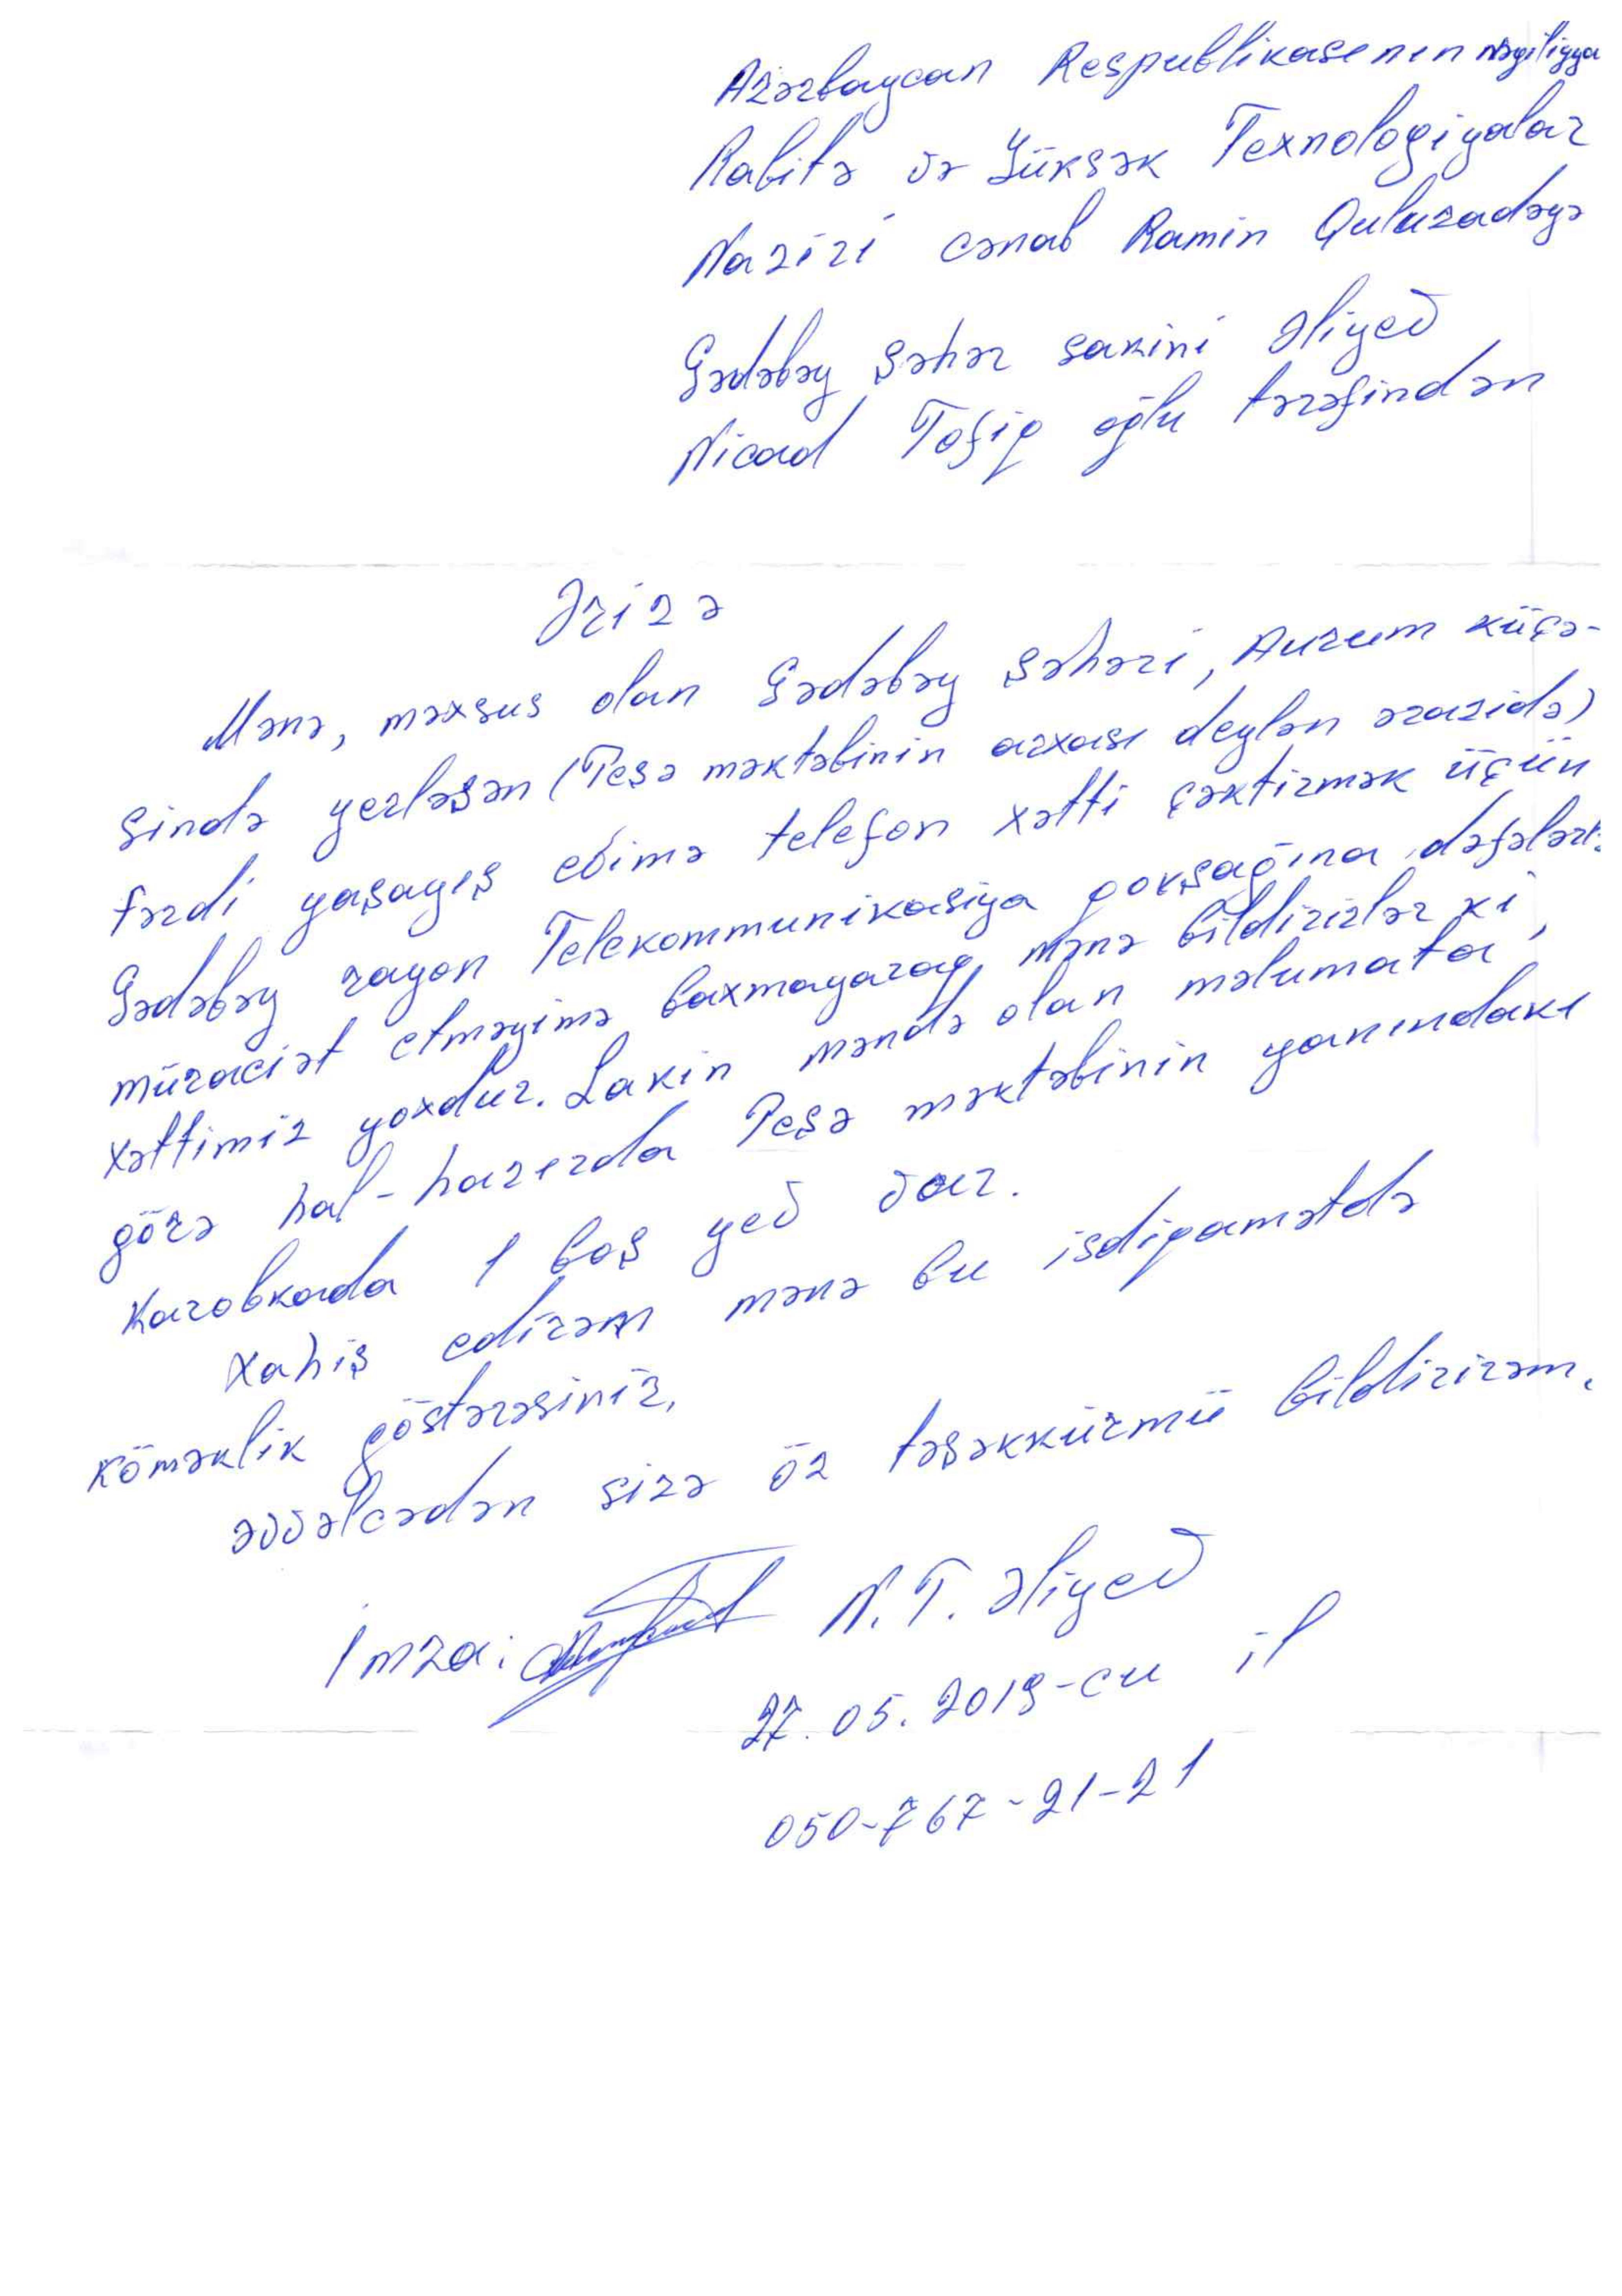 Azərbaycan Respublikasının Nəqliyya
Rabitə və Yüksək Texnologiyalar
Naziri cənab Ramin Quluzadəyə
Gədəbəy şəhər sakini Əliyev
Nicad Tofiq oğlu tərəfindən
Ərizə
Mənə, məxsus olan Gədəbəy şəhəri, Aurum küçə-
sində yerləşən (Peşə məktəbinin arxası deylən ərazidə)
fərdi yaşayış evimə telefon xətti çəktirmək üçün
Gədəbəy rayon Telekommunikasiya qovşağına dəfələrlə
müraciət etməyimə baxmayaraq mənə bildirirlər ki,
xəttimiz yoxdur. Lakin məndə olan məlumata
görə hal-hazırda Peşə məktəbinin yanındakı
karobkada 1 boş yev var.
Xahiş edirəm mənə bu isdiqamətdə
köməklik göstərəsiniz.
əvvəlcədən sizə öz təşəkkürmü bildirirəm.
İmza: N.T. Əliyev
27.05.2019-cu il
050-767-21-21